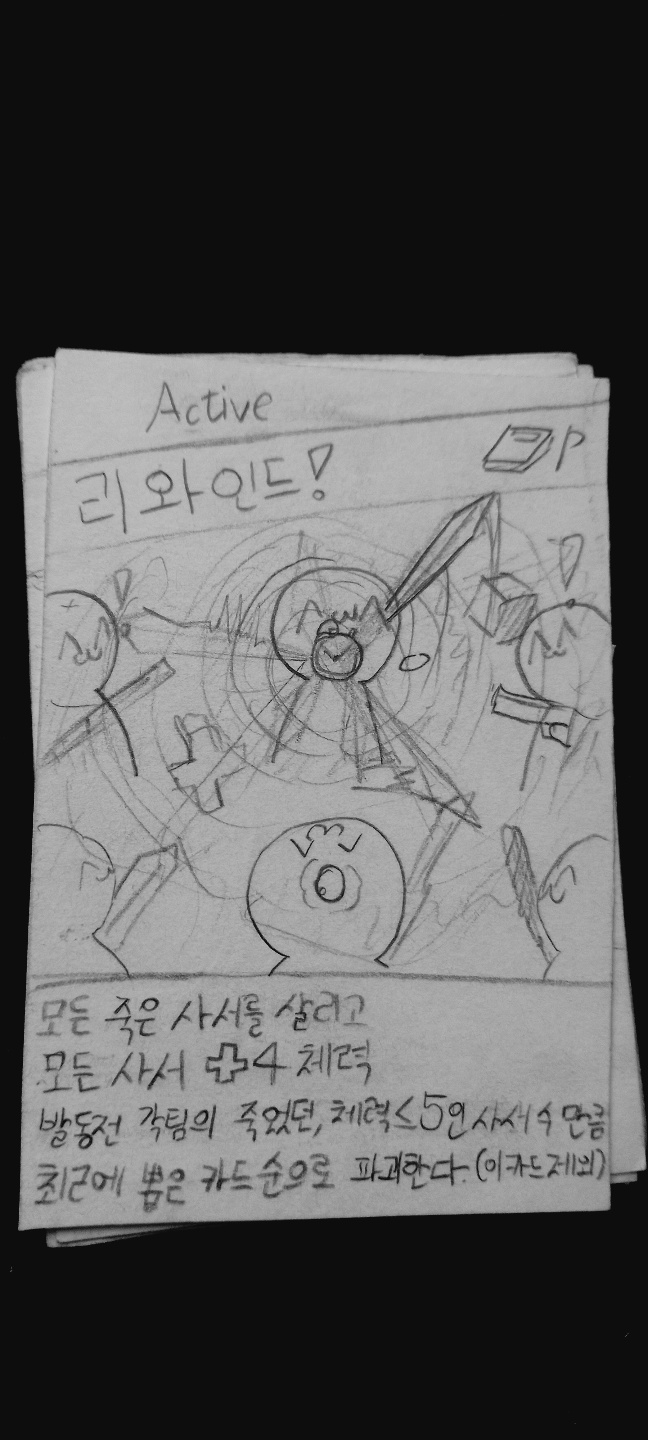 Active
P
리와인드!
모든 죽은 사서를 살리고
모든 사서 ✚4 체력
발동전 각팀의 죽었던, 체력≤5인 사서 수 만큼
최근에 뽑은 카드 순으로 파괴한다. (이카드제외)